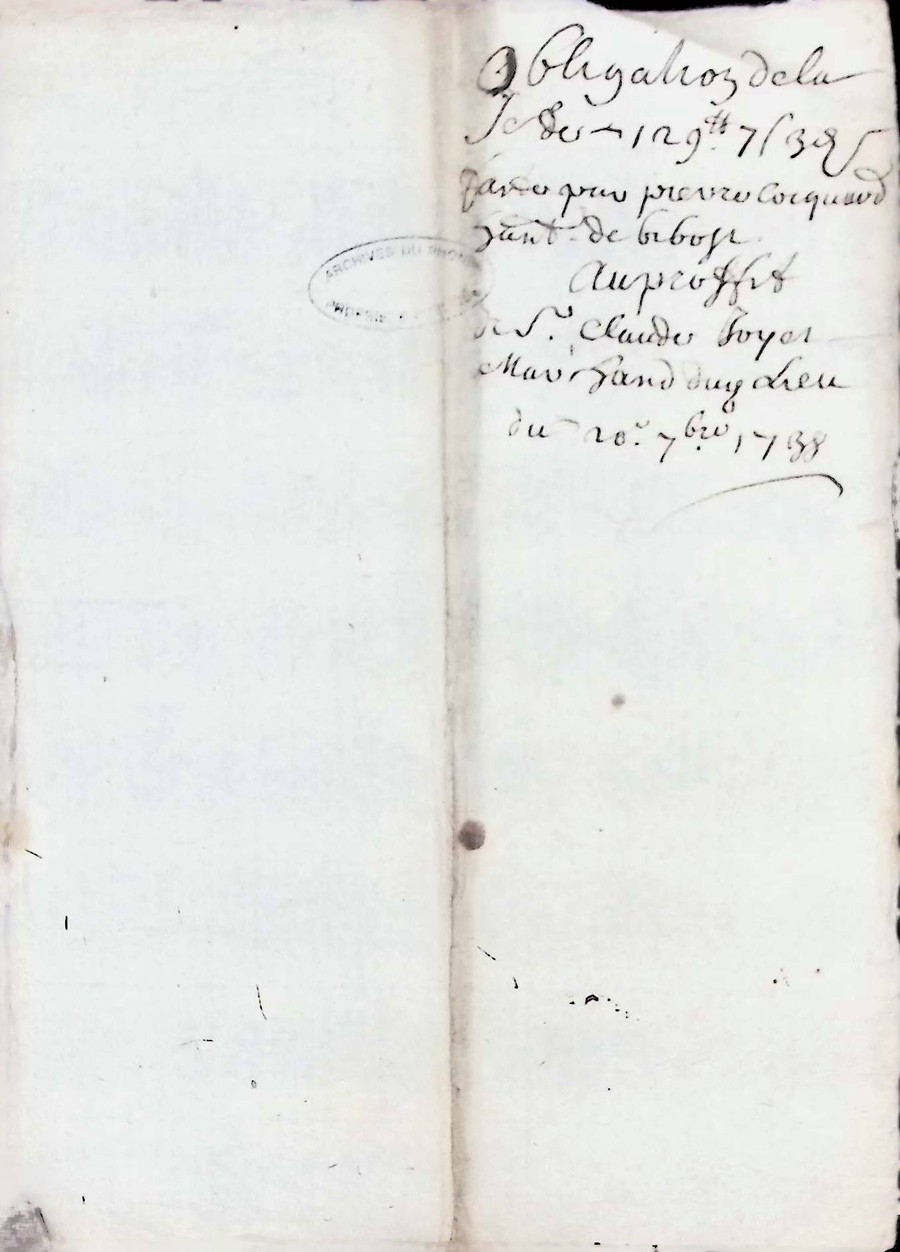 Obligation dela
de 129ᵗᵗ 7ſ 3δ
faite par pierre Coquard
hant. de bibost
Au proffit
de Sr. Claude Boyer
Marchand dud Lieu
du 20e. 7bre 1738
ARCHIVES DU RHONE